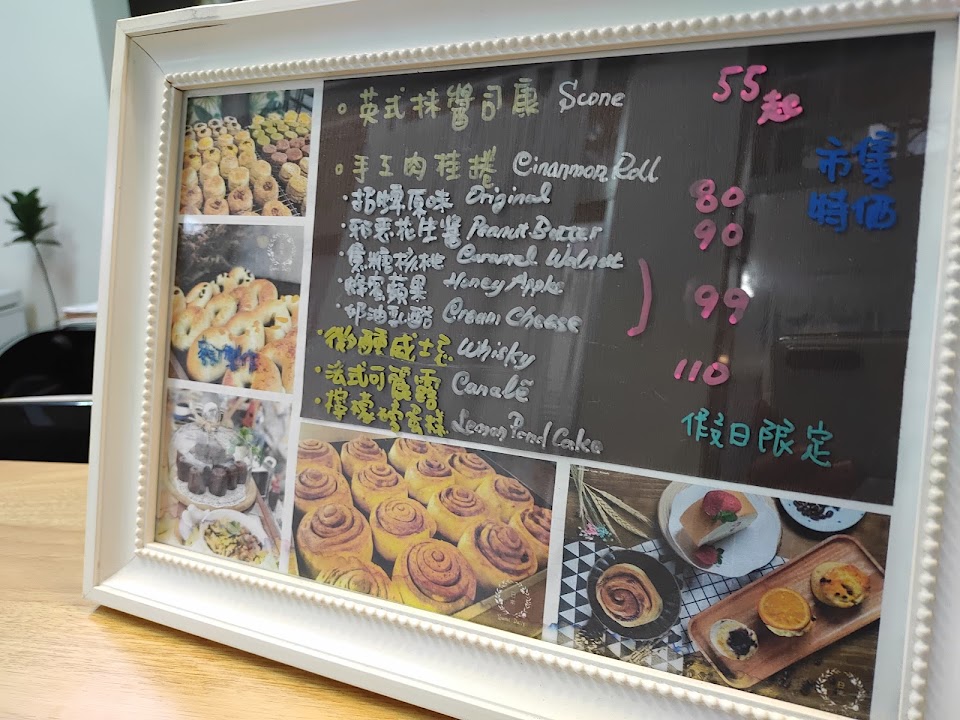 英式抹醬司康 Scone 55起
手工肉桂捲 Cinanmon Roll
市集特價
招牌原味 Original 80
邪惡花生醬 Peanut Butter 90
焦糖核桃 Caramel Walnut
蜂蜜蘋果 Honey Apple 99
奶油乳酪 Cream Cheese
微醺威士忌 Whisky 110
法式可麗露 Canalé
檸檬塔蛋糕 Lemon Pond Cake
假日限定